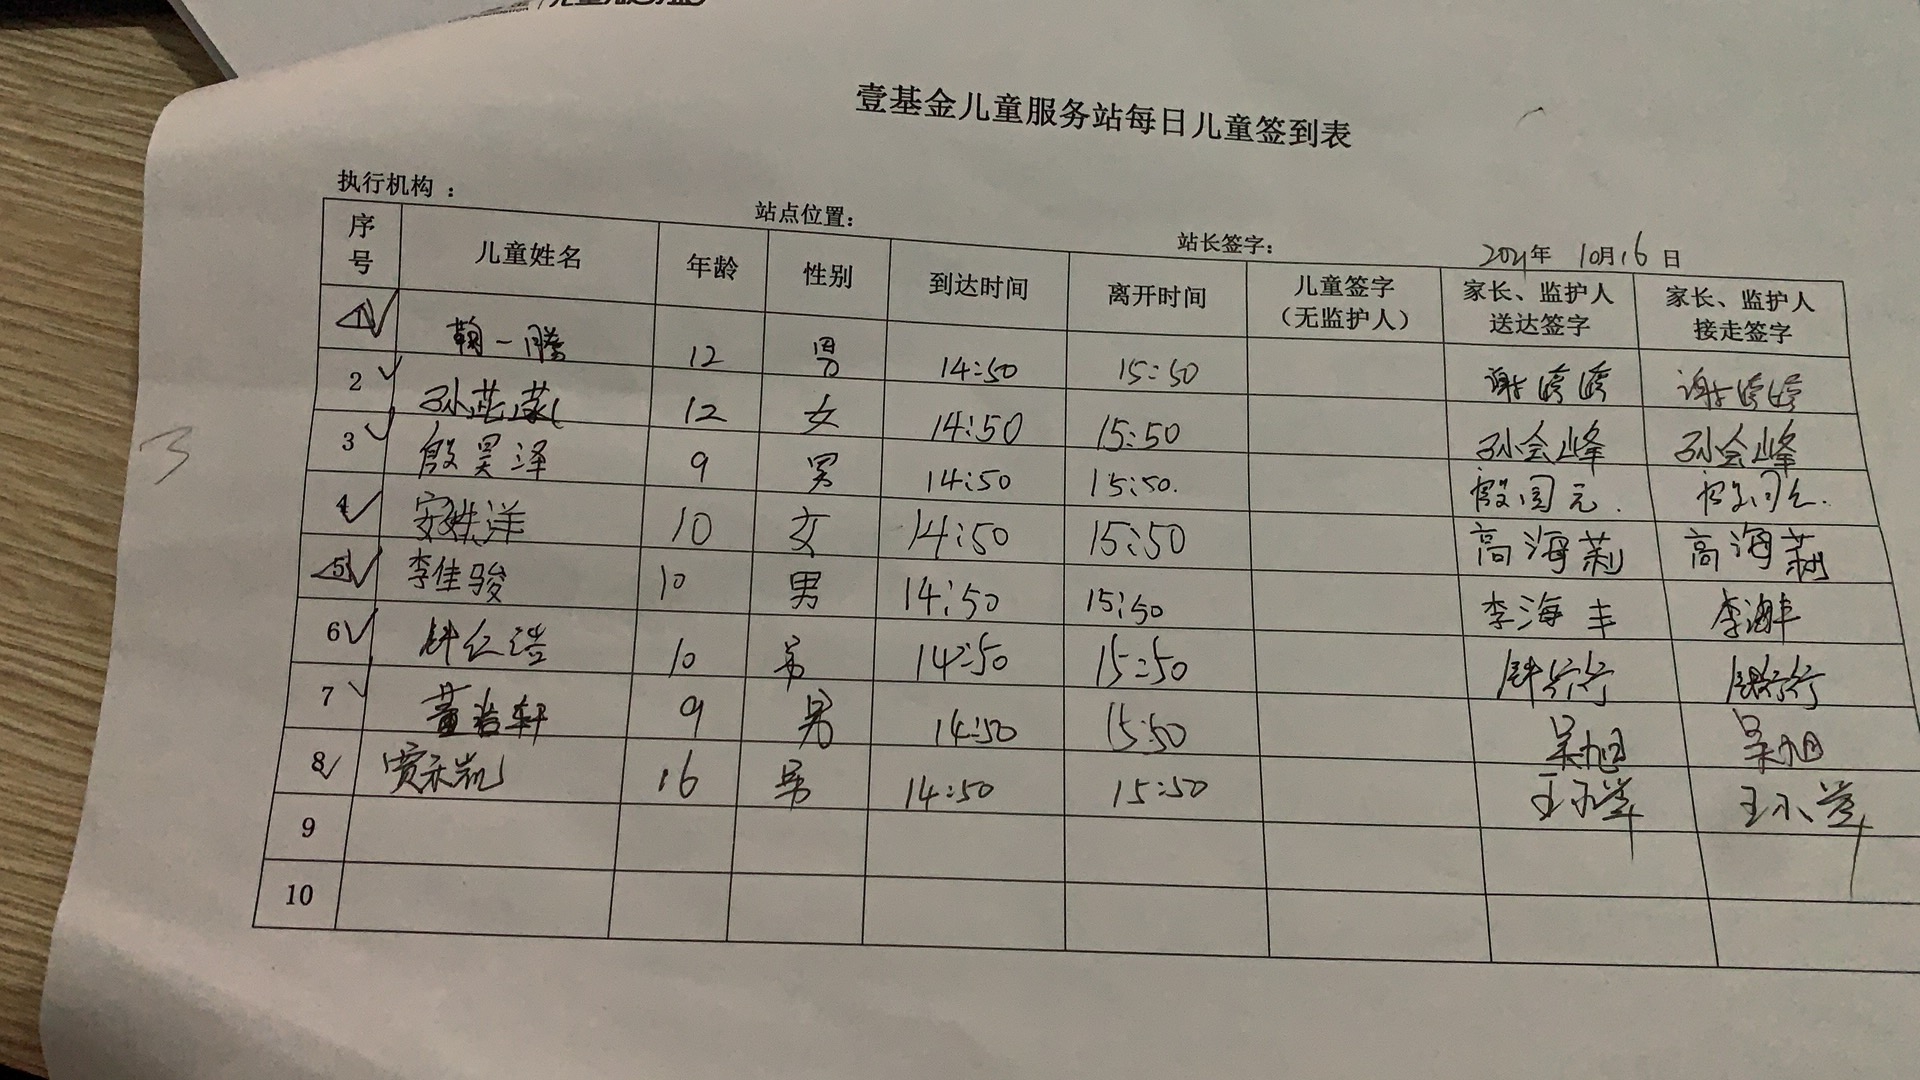 壹基金儿童服务站每日儿童签到表
执行机构： 站点位置： 站长签字： 2021年 10月16日
序号 儿童姓名 年龄 性别 到达时间 离开时间 儿童签字（无监护人） 家长、监护人送达签字 家长、监护人接走签字
1 鞠一腾 12 男 14:50 15:50
2 12 女 14:50 15:50 孙会峰 孙会峰
3 殷昊泽 9 男 14:50 15:50. 殷国元.
4 10 女 14:50 15:50 高海莉 高海莉
5 李佳骏 10 男 14:50 15:50 李海丰 李海丰
6 10 男 14:50 15:50
7 9 男 14:50 15:50 吴旭 吴旭
8 16 男 14:50 15:50
9
10
3